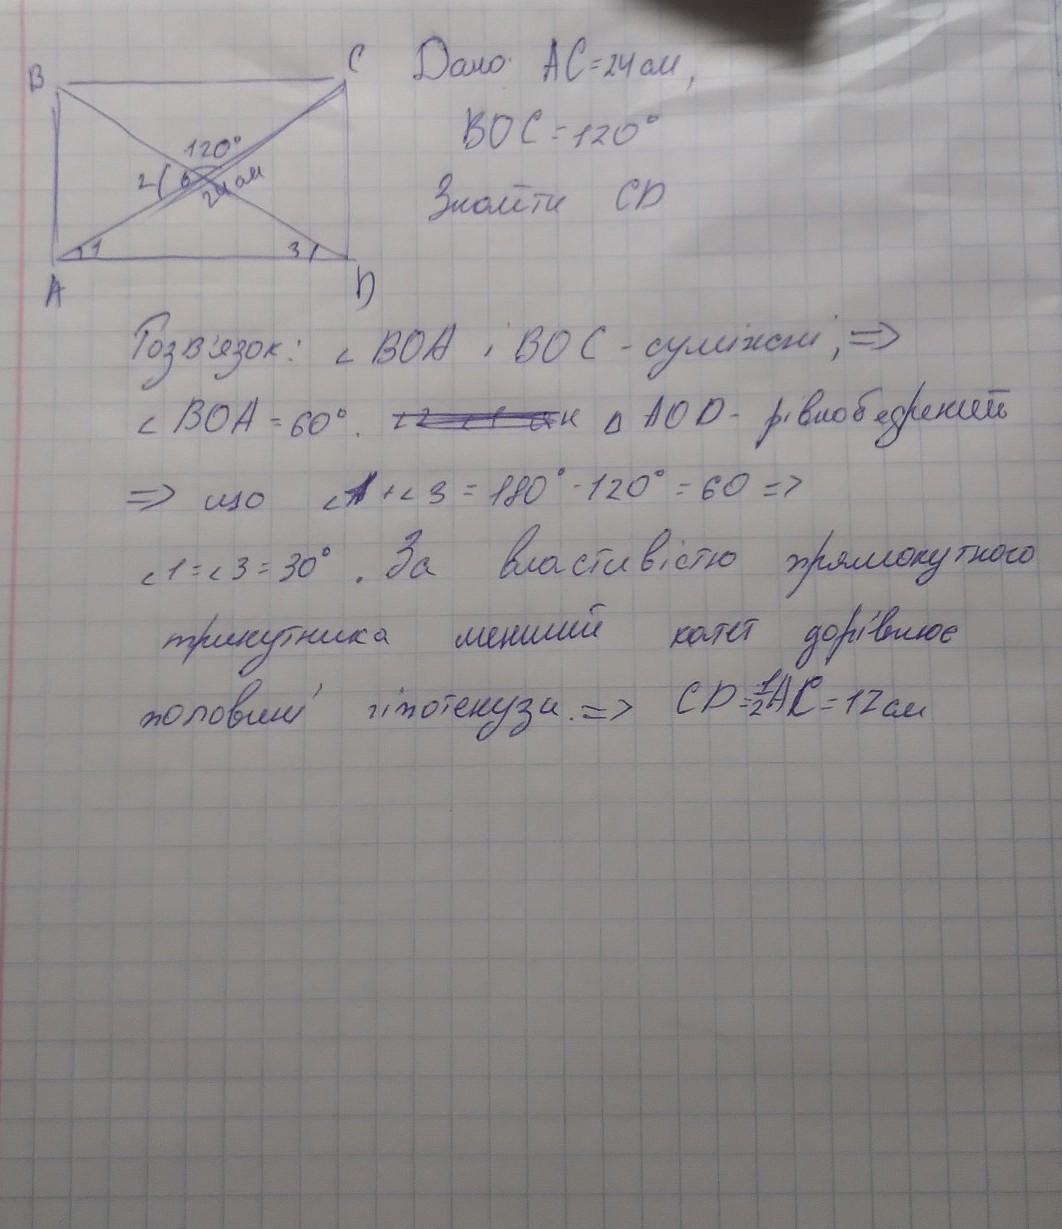 B
C
Дано: AC=24 см,
120°
BOC=120°
2
24 см
Знайти CD
1
3
A
D
Розв'язок: ∠BOA і BOC - суміжні, =>
∠BOA=60°. △ AOD - рівнобедрений
=> що ∠1+∠3=180°-120°=60 =>
∠1=∠3=30°. За властивістю прямокутного
трикутника менший катет дорівнює
половині гіпотенузи. => CD=1/2AC=12 см